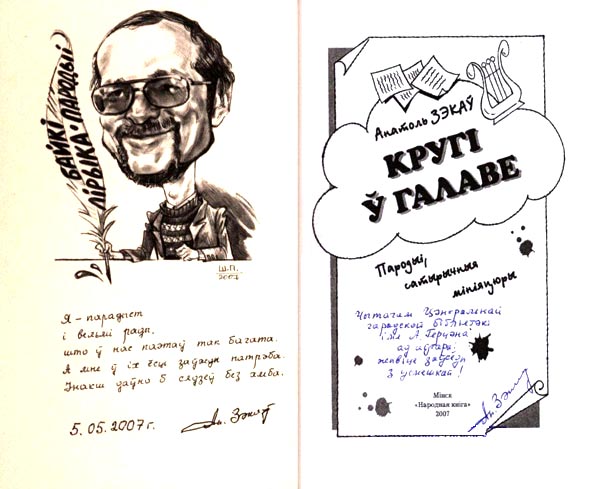 БАЙКІ
ЛІРЫКА • ПАРОДЫІ
Ш.П.
2007
Я – парадыст
і вельмі рады,
што ў нас паэтаў так багата.
А мне ў іх есць заўжды патрэба.
Інакш даўно б сядзеў без хлеба.
5.05.2007 г. Ан. Зэкаў
Анатоль ЗЭКАЎ
КРУГІ
Ў ГАЛАВЕ
Пародыі,
сатырычныя
мініяцюры
Чытачам Цэнтральнай
гарадской бібліятэкі
імя А. Герцэна
ад аўтара:
жывіце заўсёды
з усмешкай!
Ан. Зэкаў
Мінск
«Народная кніга»
2007